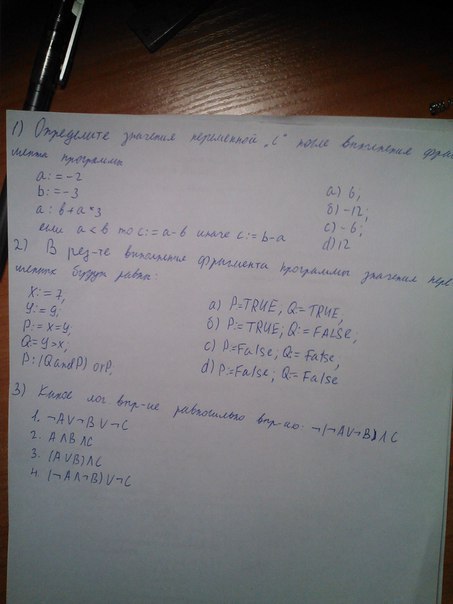 1) Определите значения переменной „с" после выполнения фраг
мента программы
a: = -2
b: = -3
a: b + a * 3
если a < b то c: = a - b иначе c: = b - a
а) 6;
б) -12;
с) -6;
d) 12
2) В рез-те выполнения фрагмента программы значения пере
менных будут равны:
X: = 7;
Y: = 9;
P: = X = Y;
Q = Y > X;
P: (Q and P) or P;
а) P = TRUE; Q = TRUE;
б) P: = TRUE; Q: = FALSE;
с) P = False; Q = False;
d) P = False; Q = False
3) Какое лог выр-ие равносильно выр-ю. ¬(¬A∨¬B)∧C
1. ¬A∨¬B∨¬C
2. A∧B∧C
3. (A∨B)∧C
4. (¬A∧¬B)∨¬C